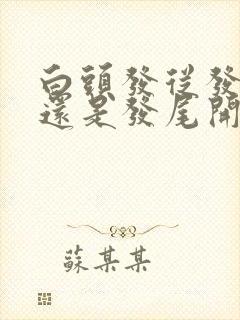 白頭發從發
還是發尾開
蘇某某